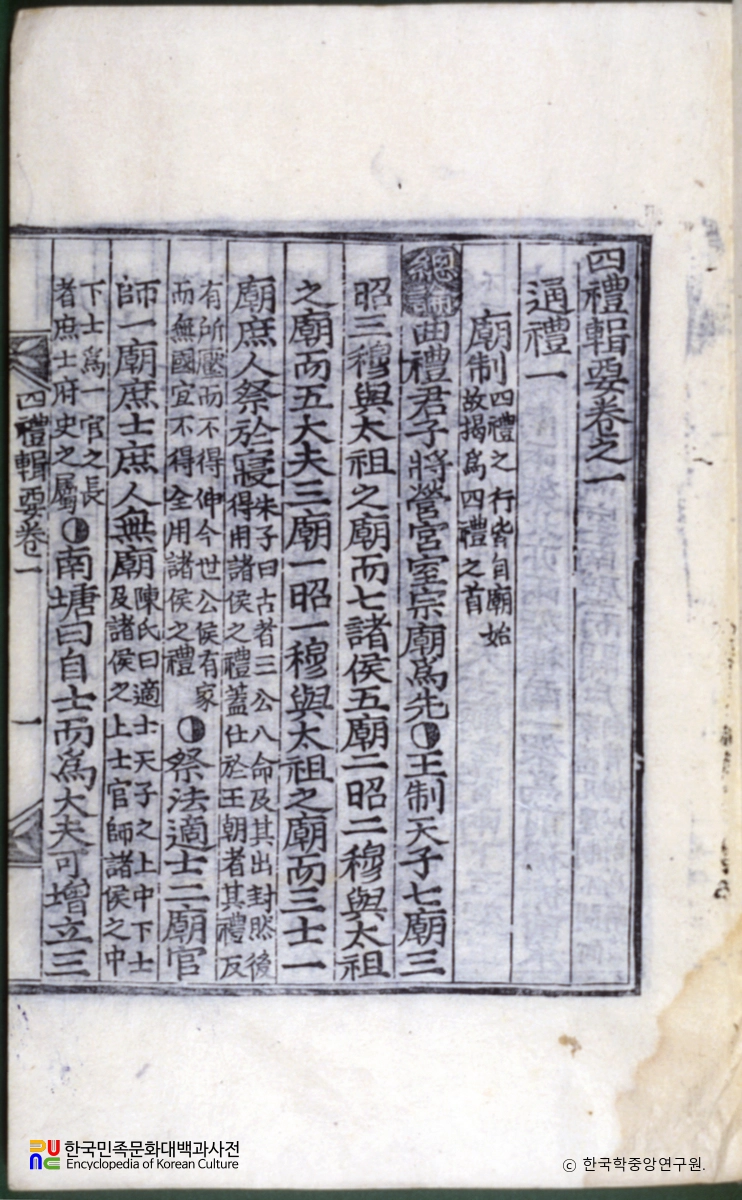 四禮輯要卷之一
通禮一
廟制四禮之行皆自廟始故揭爲四禮之首
總論曲禮君子將營宮室宗廟爲先◑王制天子七廟三
昭三穆與太祖之廟而七諸侯五廟二昭二穆與太祖
之廟而五大夫三廟一昭一穆與太祖之廟而三士一
廟庶人祭於寢朱子曰古者三公八命及其出封然後得用諸侯之禮蓋仕於王朝者其禮反
有所壓而不得伸今世公侯有家而無國宜不得全用諸侯之禮◑祭法適士二廟官
師一廟庶士庶人無廟陳氏曰適士天子之上中下士及諸侯之上士官師諸侯之中
下士爲一官之長者庶士府史之屬◑南塘曰自士而爲大夫可增立三
四禮輯要卷一
一
한국민족문화대백과사전
Encyclopedia of Korean Culture
© 한국학중앙연구원.